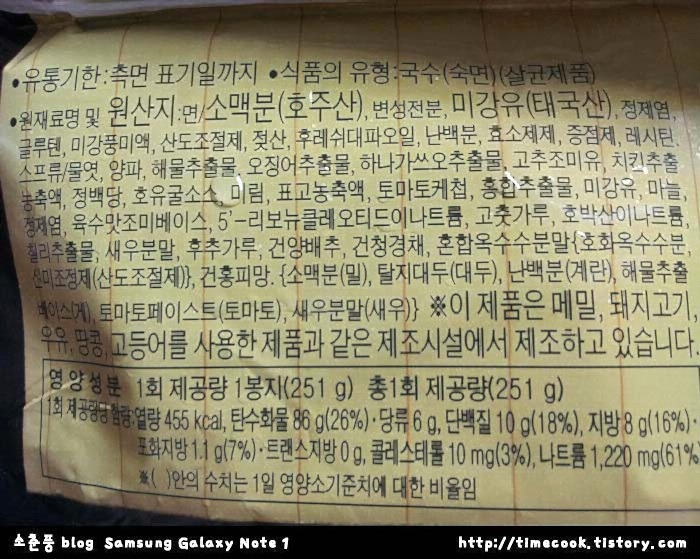 •유통기한:측면 표기일까지 •식품의 유형:국수(숙면)(살균제품)
•원재료명 및 원산지:면/소맥분(호주산), 변성전분, 미강유(태국산), 정제염,
글루텐, 미강풍미액, 산도조절제, 젖산, 후레쉬대파오일, 난백분, 효소제제, 증점제, 레시틴.
스프류/물엿, 양파, 해물추출물, 오징어추출물, 하나가쓰오추출물, 고추조미유, 치킨추출
농축액, 정백당, 호유굴소스, 미림, 표고농축액, 토마토케첩, 홍합추출물, 미강유, 마늘,
정제염, 육수맛조미베이스, 5'-리보뉴클레오티드이나트륨, 고춧가루, 호박산이나트륨,
칠리추출물, 새우분말, 후추가루, 건양배추, 건청경채, 혼합옥수수분말{호화옥수수분,
산미조정제(산도조절제)}, 건홍피망. {소맥분(밀), 탈지대두(대두), 난백분(계란), 해물추출
베이스(게), 토마토페이스트(토마토), 새우분말(새우)} ※이 제품은 메밀, 돼지고기,
우유, 땅콩, 고등어를 사용한 제품과 같은 제조시설에서 제조하고 있습니다.
영양성분 1회 제공량 1봉지(251 g) 총1회 제공량(251 g)
1회 제공량당 함량:열량 455 kcal, 탄수화물 86 g(26%)·당류 6 g, 단백질 10 g(18%), 지방 8 g(16%)·
포화지방 1.1 g(7%)·트랜스지방 0 g, 콜레스테롤 10 mg(3%), 나트륨 1,220 mg(61%
※( )안의 수치는 1일 영양소기준치에 대한 비율임
소춘풍 blog Samsung Galaxy Note 1 http://timecook.tistory.com